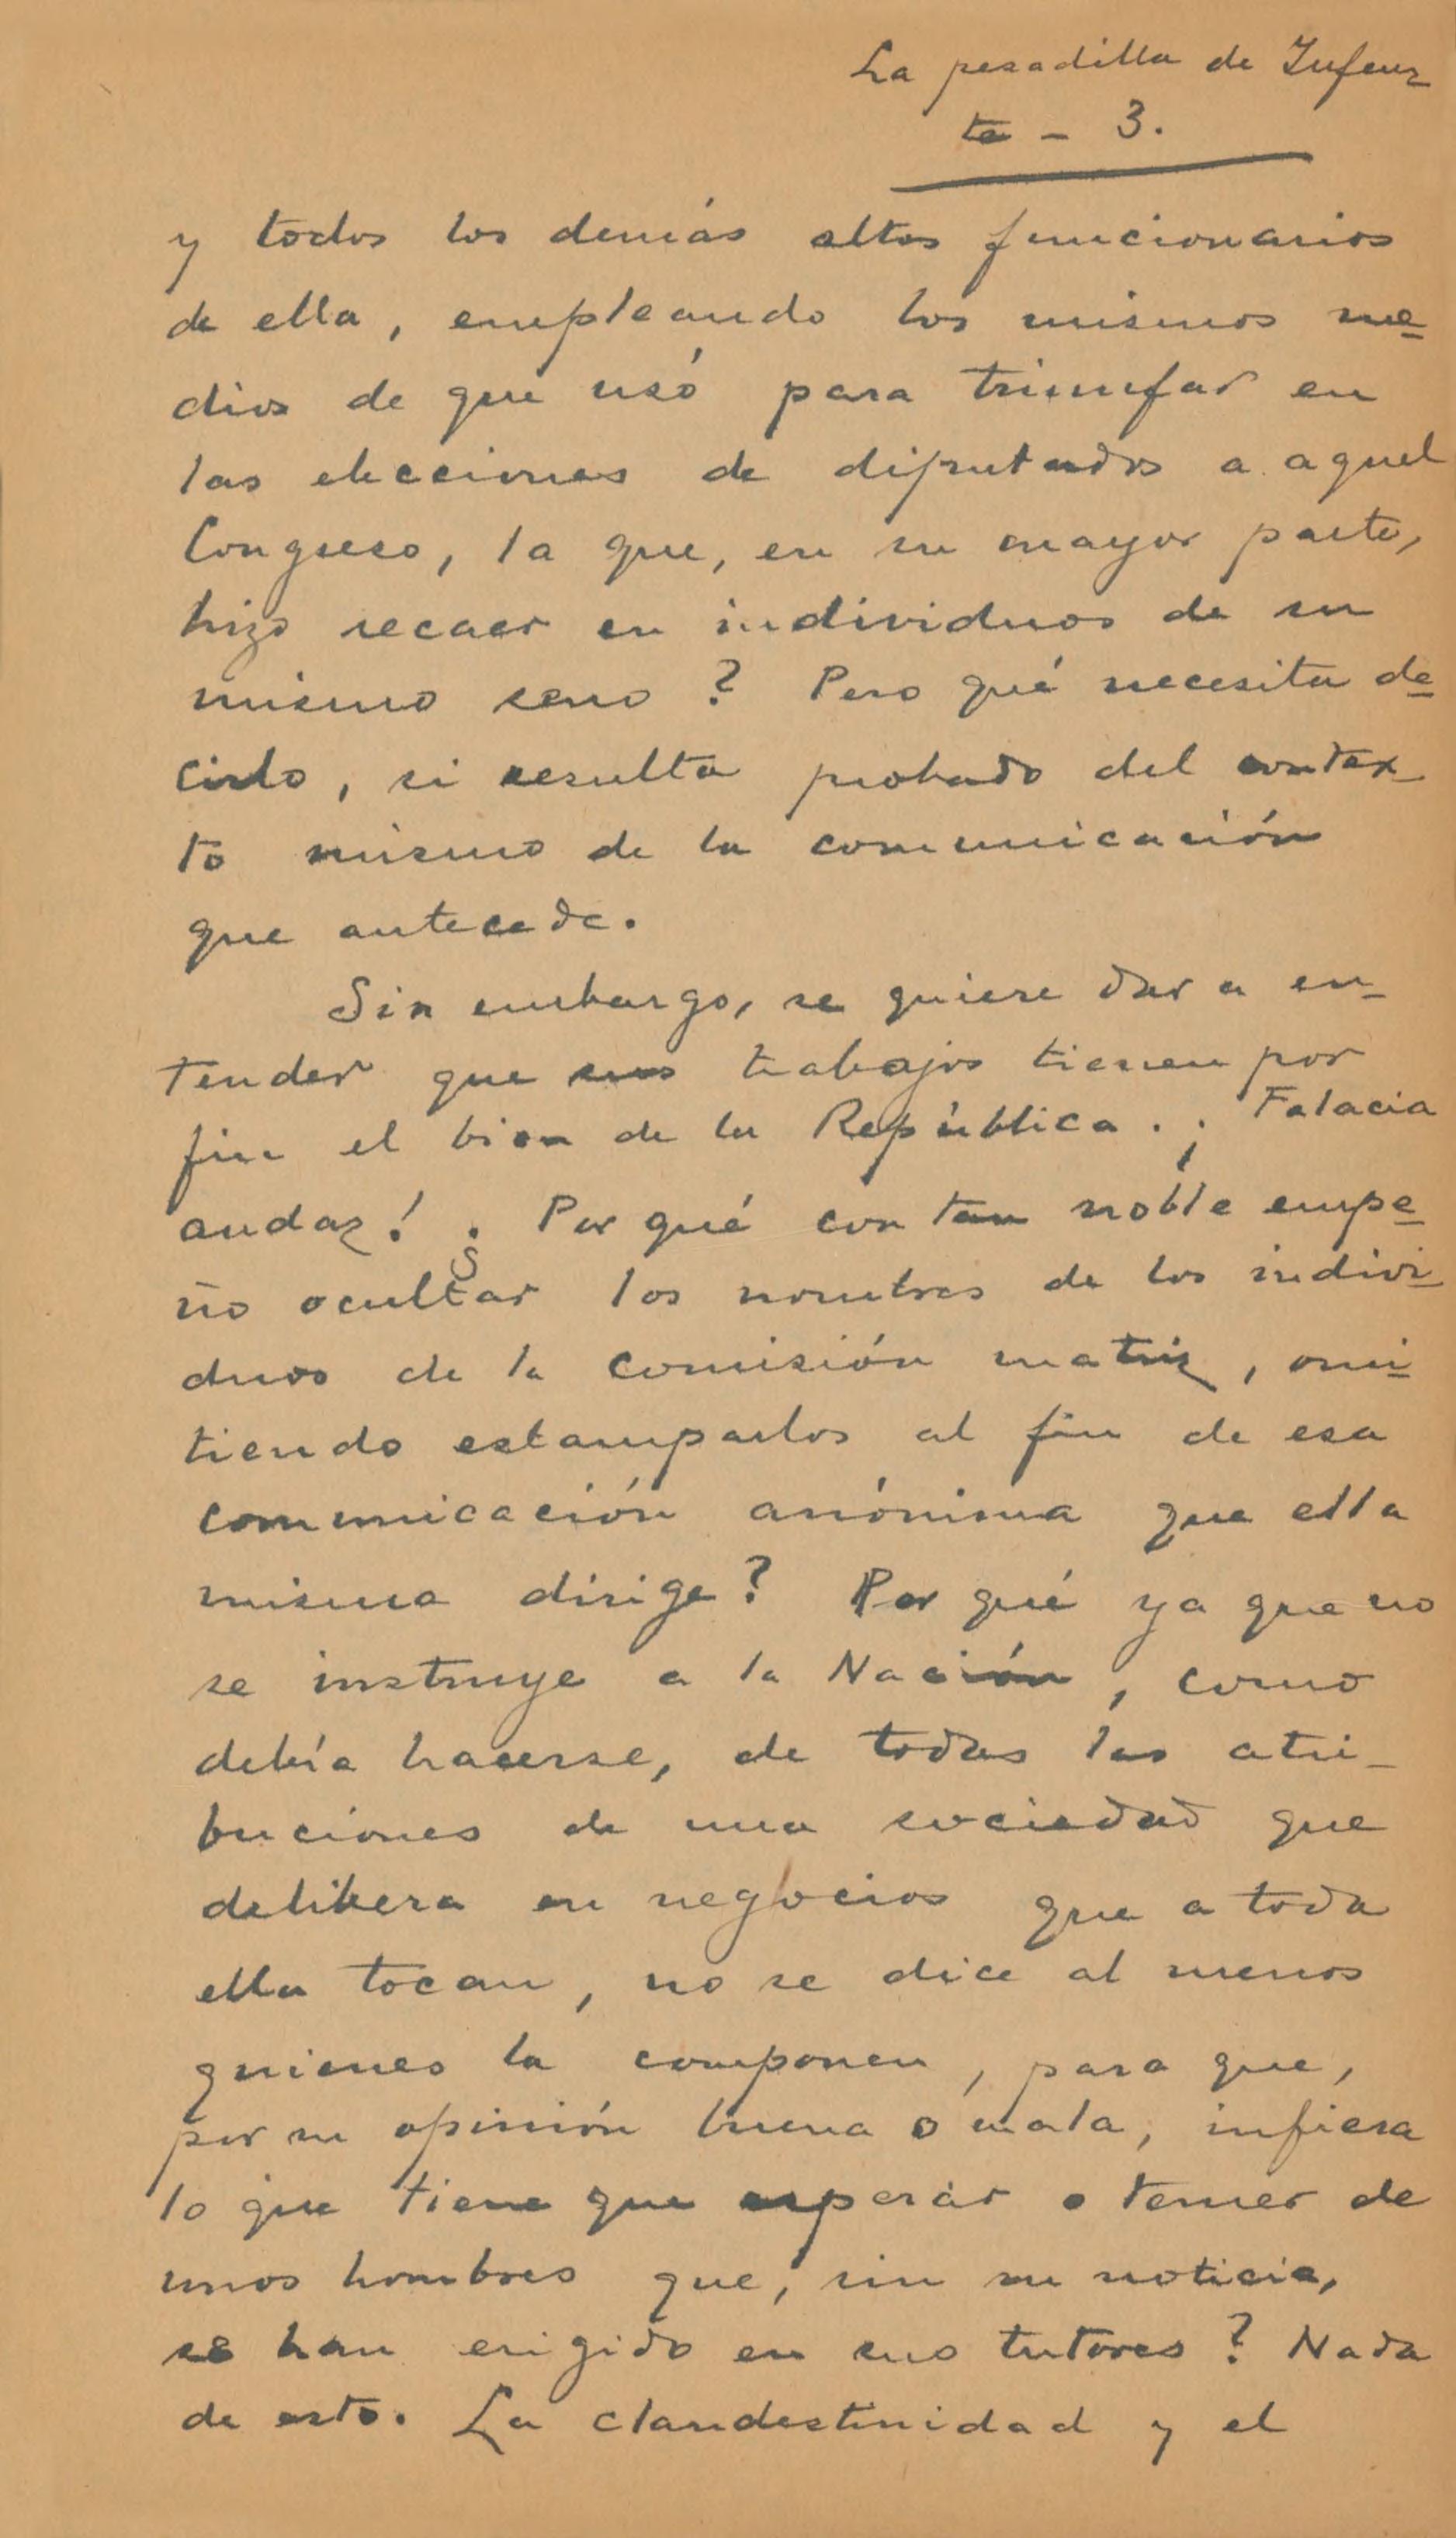 La pesadilla de Infan
te - 3.
y todos los demás altos funcionarios
de ella, empleando los mismos me-
dios de que usó para triunfar en
las elecciones de diputados a aquel
Congreso, la que, en su mayor parte,
hizo recaer en individuos de su
mismo seno? Pero qué necesita de-
cirlo, si resulta probado del contex-
to mismo de la comunicación
que antecede.
Sin embargo, se quiere dar a en-
tender que sus trabajos tienen por
fin el bien de la República. ¡Falacia
audaz! ¿Por qué con tan noble empe-
ño ocultar los nombres de los indivi-
duos de la comisión matriz, omi-
tiendo estamparlos al fin de esa
comunicación anónima que ella
misma dirige? Por qué ya que no
se instruye a la Nación, como
debía hacerse, de todas las atri-
buciones de una sociedad que
delibera en negocios que a toda
ella tocan, no se dice al menos
quienes la componen, para que,
por su opinión buena o mala, infiera
lo que tiene que esperar o temer de
unos hombres que, sin su noticia,
se han erigido en sus tutores? Nada
de esto. La clandestinidad y el